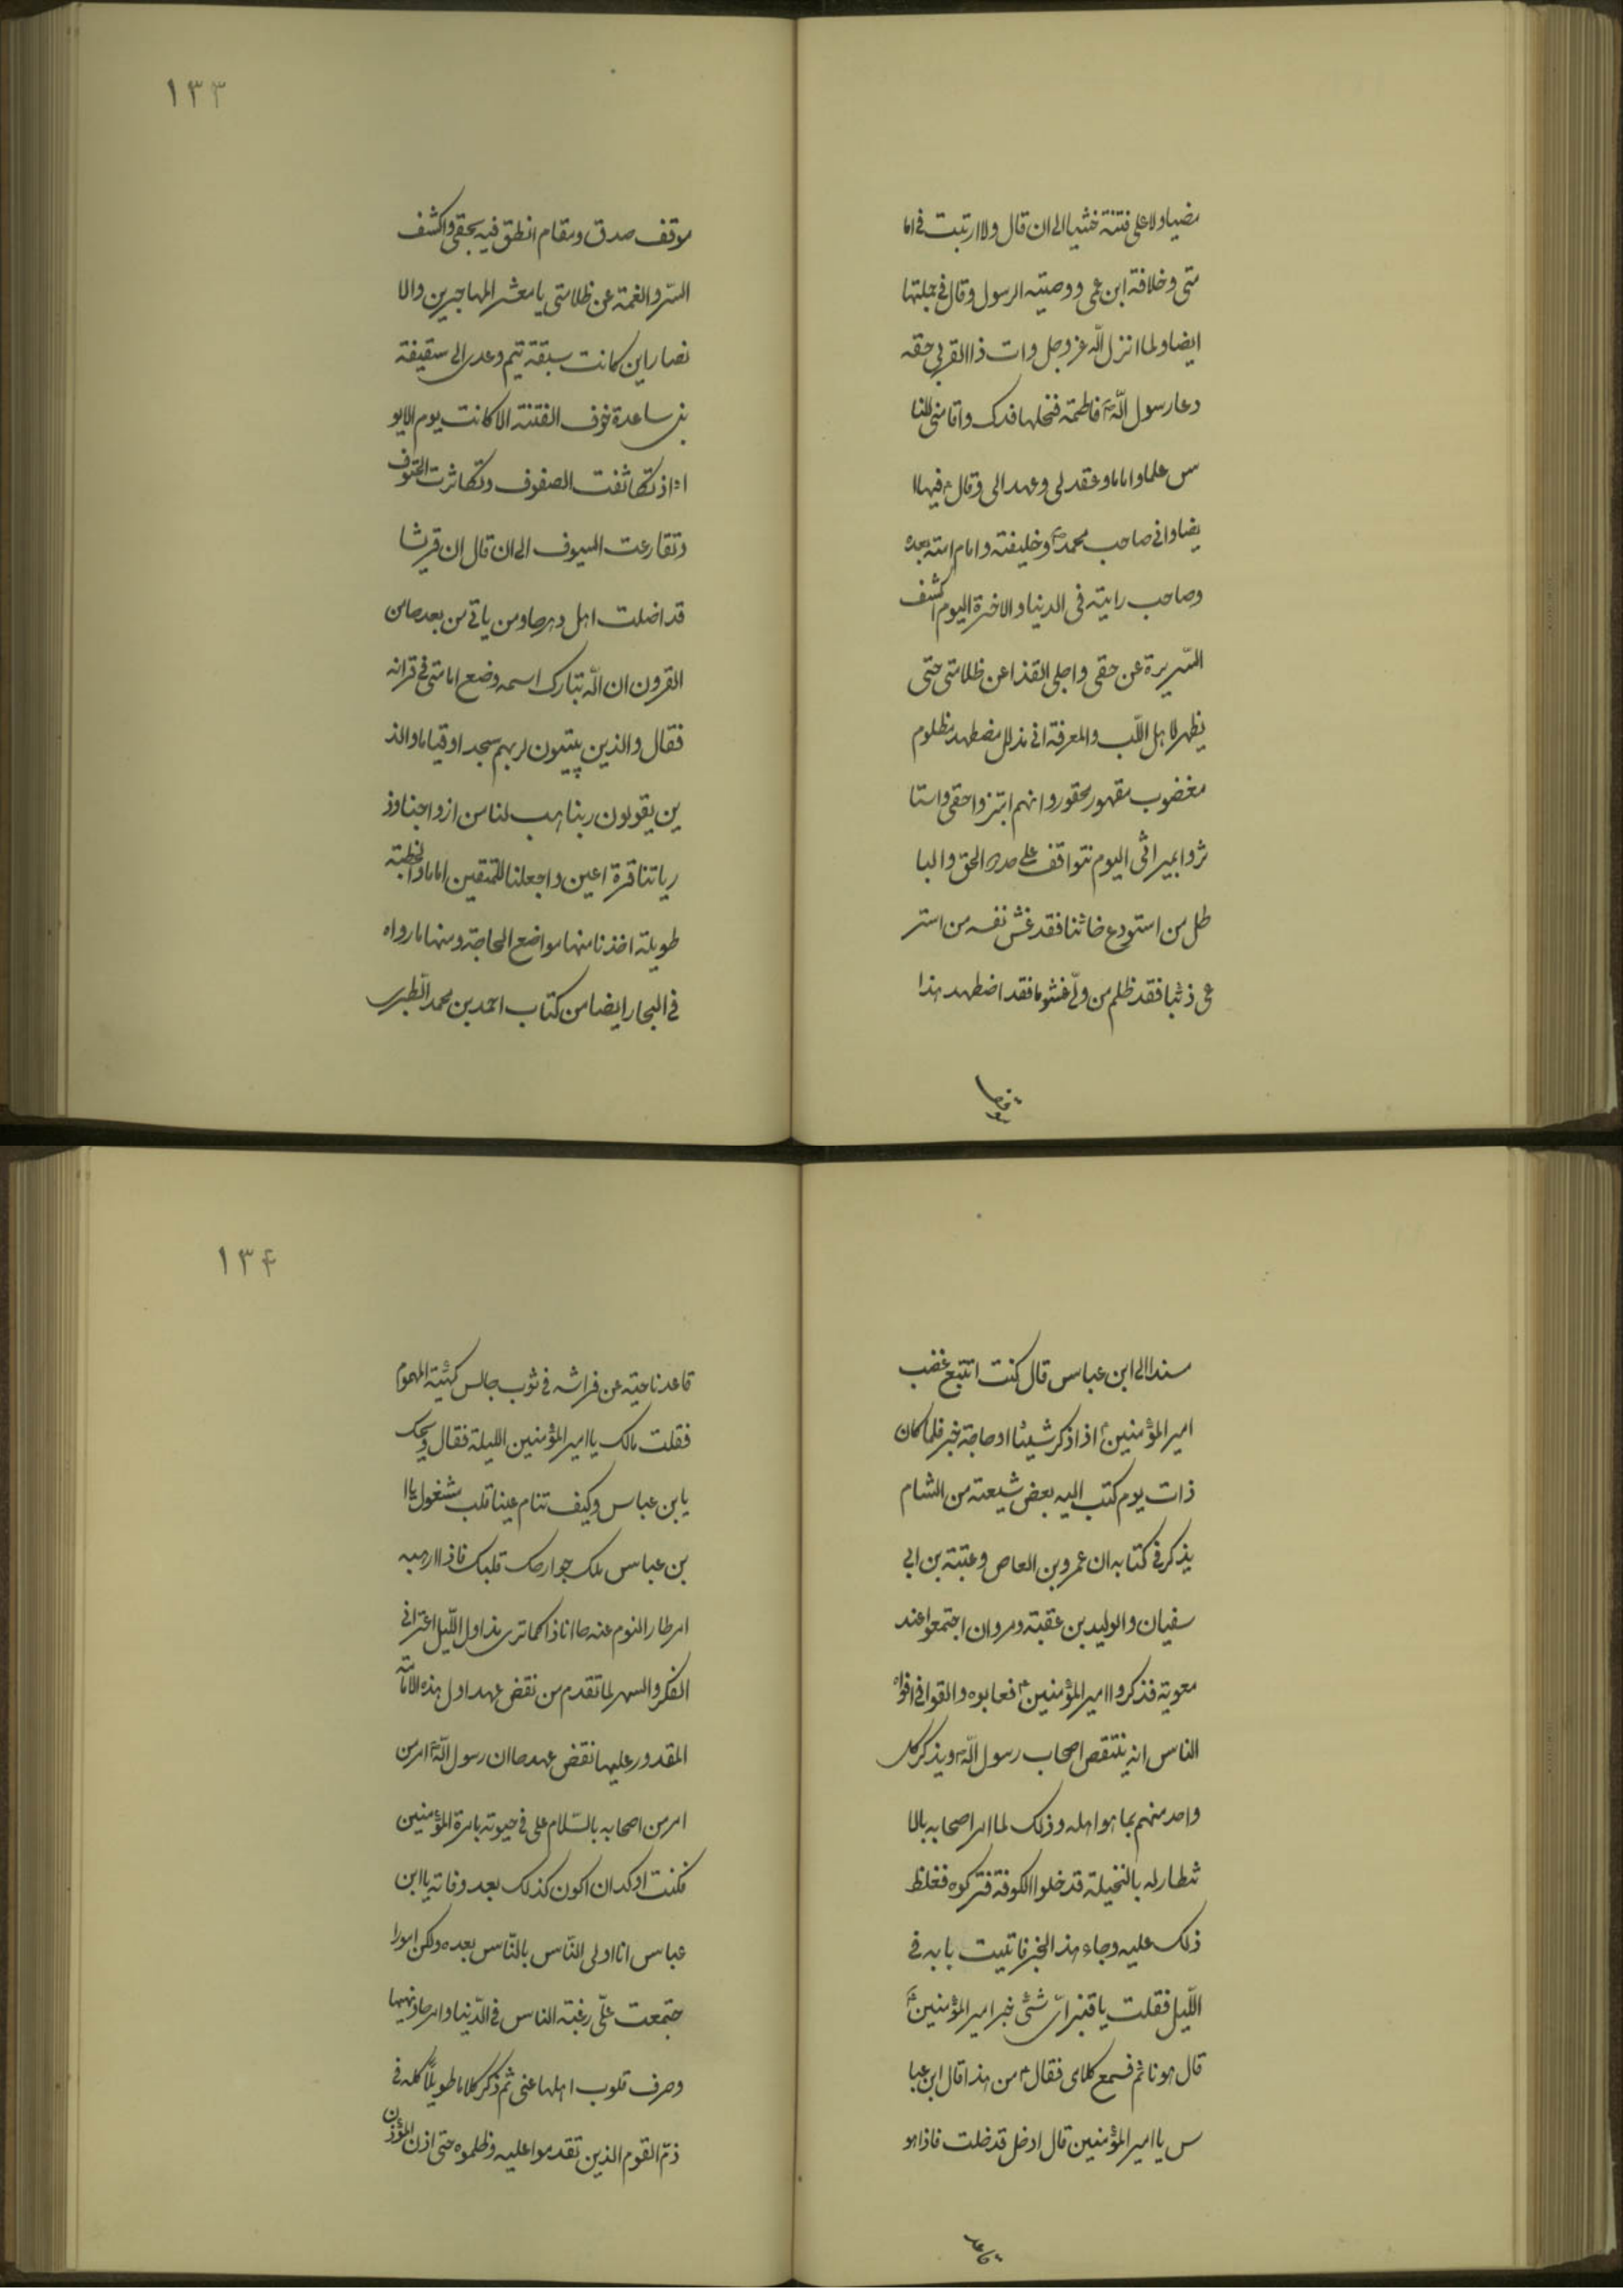 مضيا ولا على فتنة خشيا الى ان قال ولا ارتبت فى اما
متى وخلافة ابن عمى ووصية الرسول وقال فى جملتها
ايضا ولما انزل الله عز وجل وات ذا القربى حقه
دعا رسول الله ص فاطمة فنحلها فدك واقامنى للنا
س علما واماما وعقد لى وعهد الى وقال ع فيها ا
يضا وانى صاحب محمد ص وخليفته وامام امته بعده
وصاحب رايته فى الدنيا والاخرة اليوم اكشف
السّريرة عن حقى واجلى القذا عن ظلامتى حتى
يظهر لاهل اللّب والمعرفة انى مذلل مضطهد مظلوم
مغضوب مقهور محقور وانهم ابتزوا حقى واستا
ثروا بميراثى اليوم نتواقف على حدود الحق والبا
طل من استودع خائنا فقد غش نفسه من استر
عى ذئبا فقد ظلم من ولّى غشوما فقد اضطهد هذا
موقف
١٣٣
موقف صدق ومقام انطق فيه بحقى واكشف
السّر والغمة عن ظلامتى يا معشر المهاجرين والا
نصار اين كانت سبقة تيم وعدى الى سقيفة
بنى ساعدة خوف الفتنة الا كانت يوم الابو
اء اذ تكاثفت الصفوف وتكاثرت الحتوف
وتقارعت السيوف الى ان قال ان قريشا
قد اضلت اهل دهرها ومن ياتى من بعدها من
القرون ان الله تبارك اسمه وضع امامتى فى قرانه
فقال والذين يبيتون لربهم سجدا وقياما والذ
ين يقولون ربنا هب لنا من ازواجنا وذ
رياتنا قرة اعين واجعلنا للمتقين اماما والخطبة
طويلة اخذنا منها مواضع الحاجة ومنها ما رواه
فى البحار ايضا من كتاب احمد بن محمد الطّبرى
سندا الى ابن عباس قال كنت اتتبع غضب
امير المؤمنين ع اذا ذكر شيئا او هاجه خبر فلما كان
ذات يوم كتب اليه بعض شيعته من الشام
يذكر فى كتابه ان عمرو بن العاص وعتبة بن ابى
سفيان والوليد بن عقبة ومروان اجتمعوا عند
معوية فذكروا امير المؤمنين ع فعابوه والقوا فى افواه
الناس انه ينتقص اصحاب رسول الله ص ويذكر كل
واحد منهم بما هو اهله وذلك لما امر اصحابه بالا
نتظار له بالنخيلة فدخلوا الكوفة فتركوه فغلظ
ذلك عليه وجاء هذا الخبر فاتيت بابه فى
اللّيل فقلت يا قنبر اىّ شئ خبر امير المؤمنين ع
قال هو نائم فسمع كلامى فقال ع من هذا قال ابن عبا
س يا امير المؤمنين قال ادخل فدخلت فاذا هو
قاعد
١٣۴
قاعد ناحية عن فراشه فى ثوب جالس كهيئة المهموم
فقلت مالك يا امير المؤمنين الليلة فقال ويحك
يابن عباس وكيف تنام عينا قلب مشغول يا ا
بن عباس ملك جوارحك قلبك فاذا ارهبه
امر طار النوم عنه ها انا ذا كما ترى مذ اول اللّيل اعترانى
الفكر والسهر لما تقدم من نقض عهد اول هذه الامة
المقدور عليها نقض عهدها ان رسول الله ص امر من
امر من اصحابه بالسّلام على فى حيوته بامرة المؤمنين
فكنت اوكد ان اكون كذلك بعد وفاته يا ابن
عباس انا اولى النّاس بالنّاس بعده ولكن امورا
جتمعت علّى رغبة الناس فى الدّنيا وامرها ونهيها
وصرف قلوب اهلها عنى ثم ذكر كلاما طويلًا كله فى
ذمّ القوم الذين تقدموا عليه وظلموه حتى اذن المؤذن